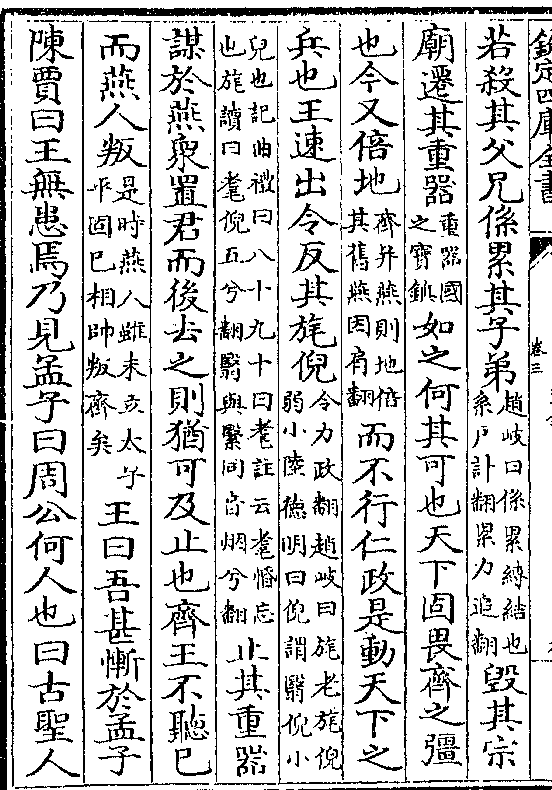 欽定四庫全書
卷三
若殺其父兄係累其子弟趙岐曰係累縛結也係戶計翻累力追翻毀其宗
廟遷其重器重器國之寶鎮如之何其可也天下固畏齊之彊
也今又倍地齊并燕則地倍其舊燕因肩翻而不行仁政是動天下之
兵也王速出令反其旄倪令力政翻趙岐曰旄老旄倪弱小陸德明曰倪謂翳倪小
兒也記曲禮曰八十九十曰耄註云耄惛忘也旄讀曰耄倪五兮翻翳與繄同音烟兮翻止其重器
謀於燕衆置君而後去之則猶可及止也齊王不聽已
而燕人叛是時燕人雖未立太子平固已相帥叛齊矣王曰吾甚慚於孟子
陳賈曰王無患焉乃見孟子曰周公何人也曰古聖人